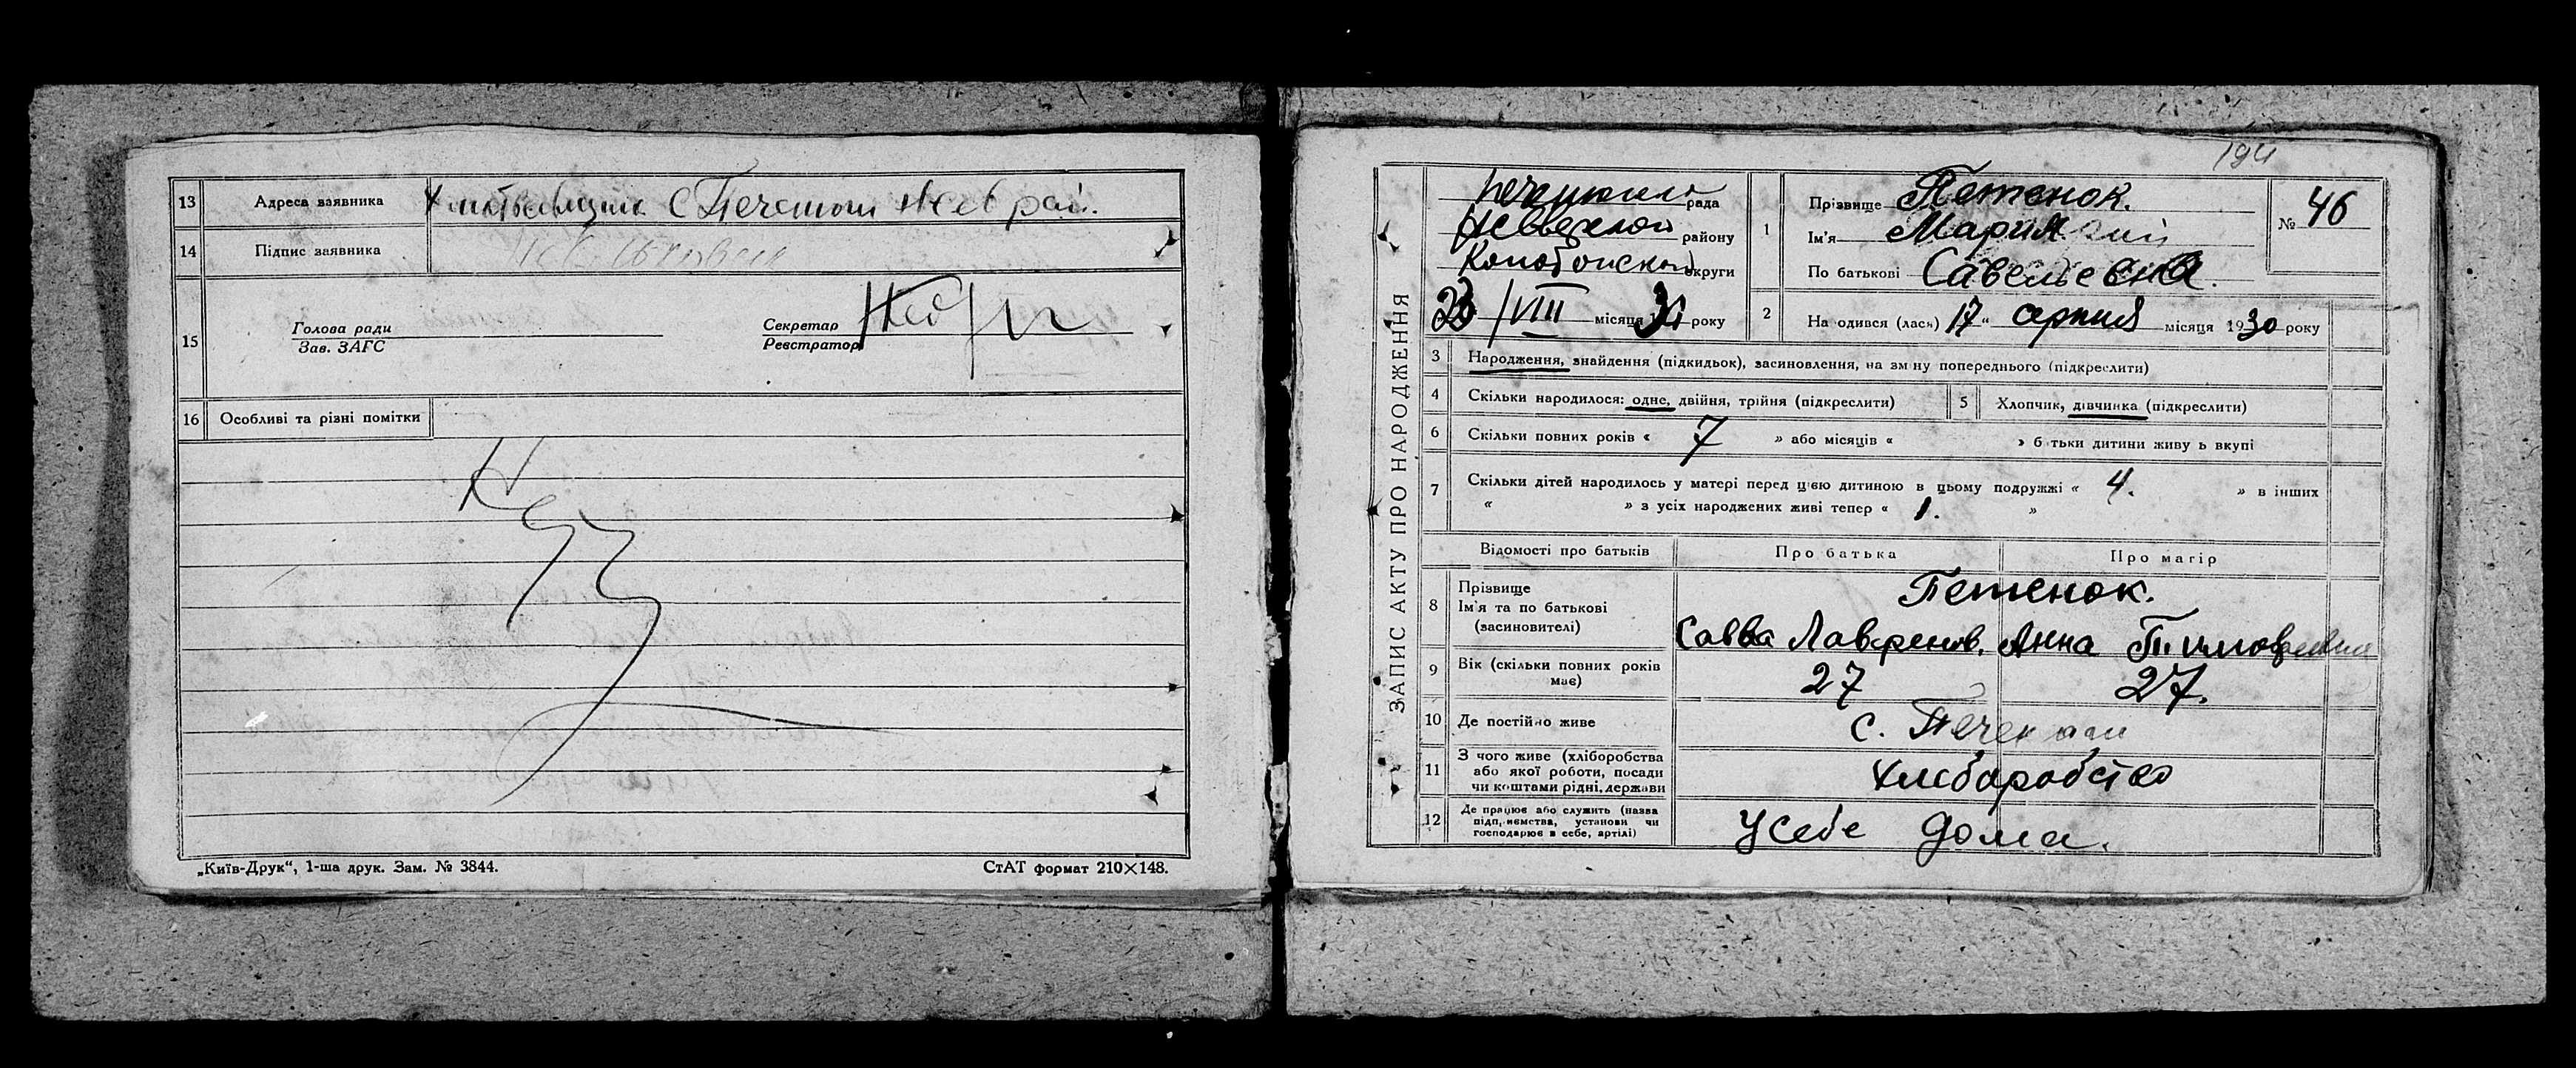 13 Адреса заявника с Печ рай.
14 Підпис заявника
15 Голова ради
Зав. ЗАГС
Секретар
Реєстратор
16 Особливі та різні помітки
„Київ-Друк“, 1-ша друк. Зам. № 3844.
СтАТ формат 210×148.
194
ЗАПИС АКТУ ПРО НАРОДЖЕННЯ
рада
району
округи
/VIII місяця 30 року
1 Прізвище Петенок.
Ім'я Мария
По батькові Савельевна.
№ 46
2 На одився (лась) 17 “ серпня місяця 1930 року
3 Народження, знайдення (підкидьок), засиновлення, на зм ну попереднього (підкреслити)
4 Скільки народилося: одне, двійня, трійня (підкреслити)
5 Хлопчик, дівчинка (підкреслити)
6 Скільки повних років « 7 » або місяців « » б тьки дитини живу ь вкупі
7 Скільки дітей народилось у матері перед цією дитиною в цьому подружжі « 4. » в інших
« » з усіх народжених живі тепер « 1. »
Відомості про батьків Про батька Про матір
8 Прізвище
Ім'я та по батькові
(засиновителі)
Петенок.
Савва Лаврєнов. Анна
9 Вік (скільки повних років
має)
27 27.
10 Де постійно живе с.
11 З чого живе (хліборобства
або якої роботи, посади
чи коштами рідні, держави
Хлеборобство
12 Де працює або служить (назва
підп,иємства, установи чи
господарює в себе, артілі)
У себе дома.